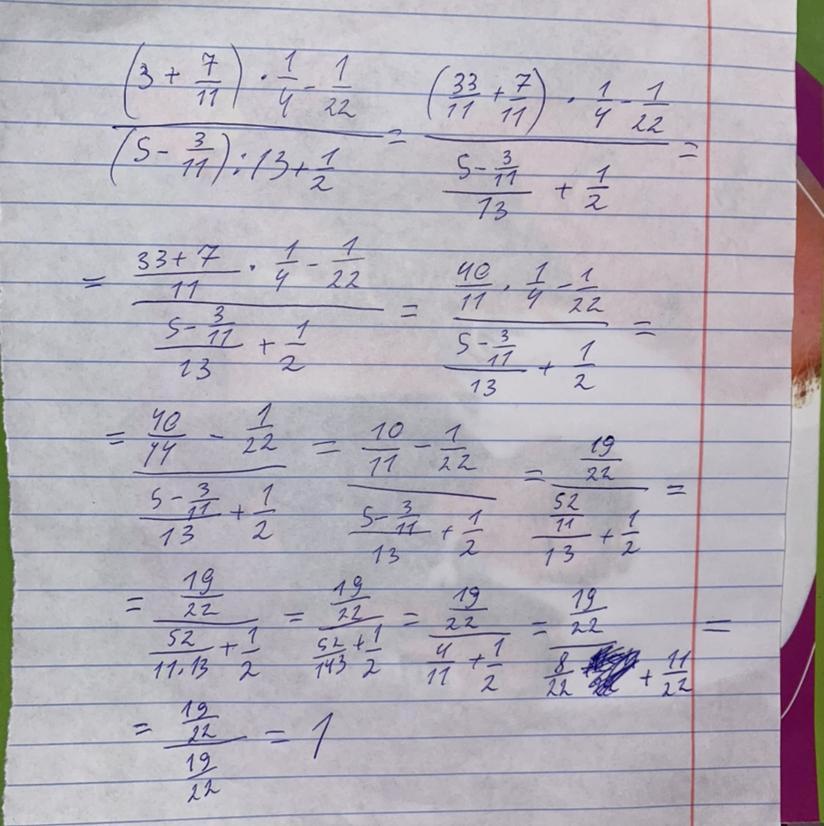 ((3 + 7/11) · 1/4 - 1/22) / ((5 - 3/11) : 13 + 1/2) = ((33/11 + 7/11) · 1/4 - 1/22) / ((5 - 3/11)/13 + 1/2) =
= ((33 + 7)/11 · 1/4 - 1/22) / ((5 - 3/11)/13 + 1/2) = (40/11 · 1/4 - 1/22) / ((5 - 3/11)/13 + 1/2) =
= (40/44 - 1/22) / ((5 - 3/11)/13 + 1/2) = (10/11 - 1/22) / ((5 - 3/11)/13 + 1/2) = (19/22) / ((52/11)/13 + 1/2) =
= (19/22) / (52/(11·13) + 1/2) = (19/22) / (52/143 + 1/2) = (19/22) / (4/11 + 1/2) = (19/22) / (8/22 + 11/22) =
= (19/22) / (19/22) = 1